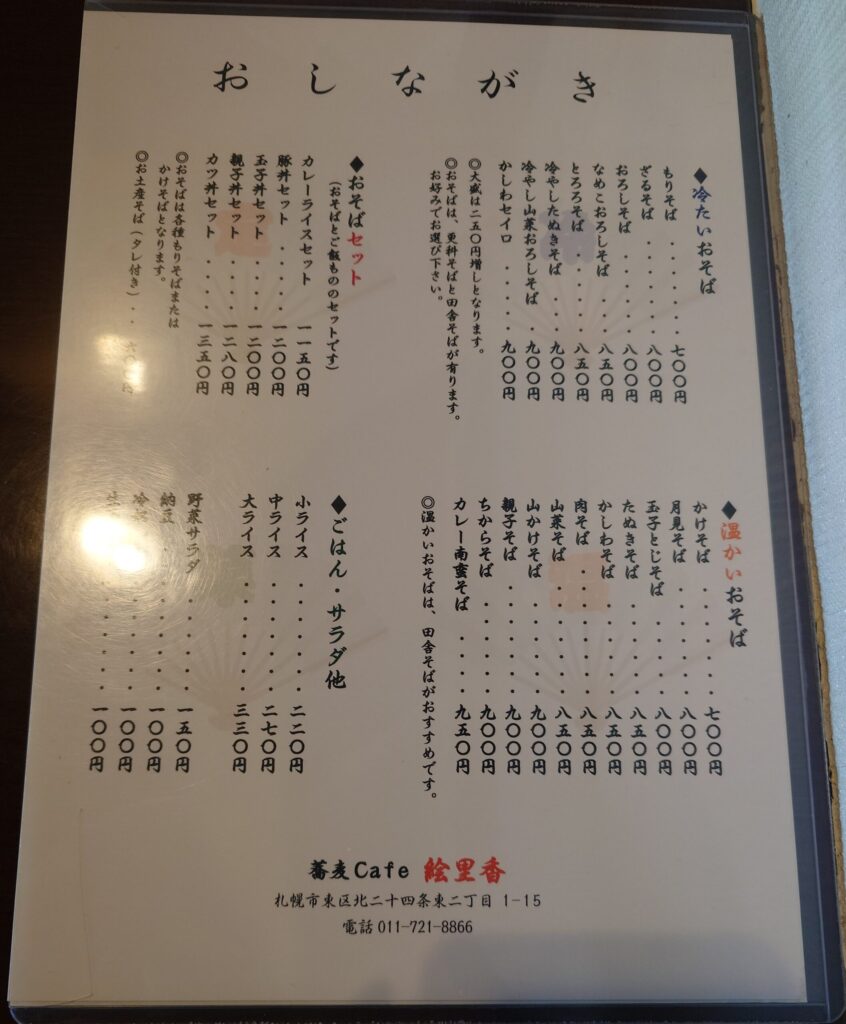 おしながき
◆冷たいおそば
もりそば・・・・・・・七〇〇円
ざるそば・・・・・・・八〇〇円
おろしそば・・・・・・八〇〇円
なめこおろしそば・・・八五〇円
とろろそば・・・・・・八五〇円
冷やしたぬきそば・・・九〇〇円
冷やし山菜おろしそば・九〇〇円
かしわセイロ・・・・・九〇〇円
◎大盛は二五〇円増しとなります。
◎おそばは、更科そばと田舎そばが有ります。
お好みでお選び下さい。
◆おそばセット
(おそばとご飯もののセットです)
カレーライスセット・・一一五〇円
豚丼セット・・・・・・一二〇〇円
玉子丼セット・・・・・一二〇〇円
親子丼セット・・・・・一二八〇円
カツ丼セット・・・・・一三五〇円
◎おそばは各種もりそばまたは
かけそばとなります。
◎お土産そば(タレ付き)・・
◆温かいおそば
かけそば・・・・・・・七〇〇円
月見そば・・・・・・・八〇〇円
玉子とじそば・・・・・八〇〇円
たぬきそば・・・・・・八五〇円
かしわそば・・・・・・八五〇円
肉そば・・・・・・・・八五〇円
山菜そば・・・・・・・八五〇円
山かけそば・・・・・・九〇〇円
親子そば・・・・・・・九〇〇円
ちからそば・・・・・・九〇〇円
カレー南蛮そば・・・・九五〇円
◎温かいおそばは、田舎そばがおすすめです。
◆ごはん・サラダ他
小ライス・・・・・・・二二〇円
中ライス・・・・・・・二七〇円
大ライス・・・・・・・三三〇円
野菜サラダ・・・・・・一五〇円
納豆・・・・・・・・・一〇〇円
・・・・・・・一〇〇円
・・・・・・・一〇〇円
蕎麦Cafe 絵里香
札幌市東区北二十四条東二丁目 1-15
電話 011-721-8866